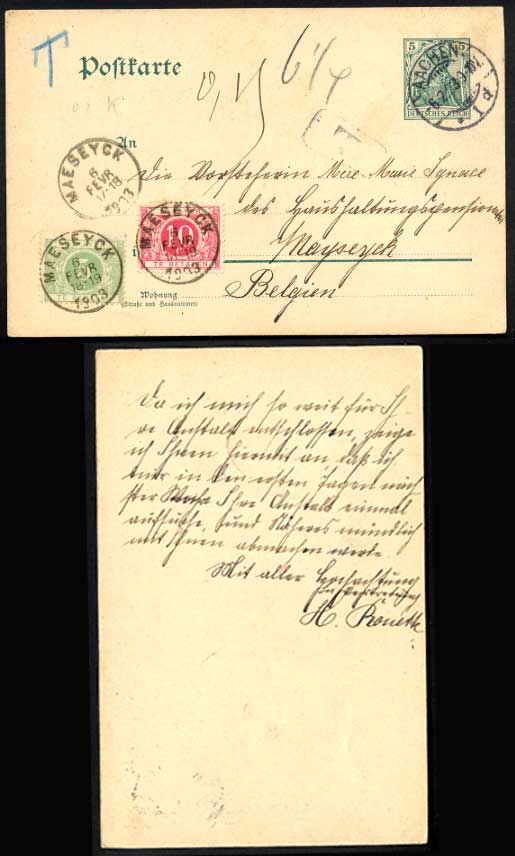 T
Postkarte
6¼
0,15
T
5
DEUTSCHES REICH
AACHEN
6.2.03
An
die Vorsteherin Mère Marie Ignace
des Haushaltungspensionates
Mayseyck
Belgien
MAESEYCK
6
FEVR
17-18
1903
MAESEYCK
6
FEVR
18-19
1903
10
TE BETALEN
MAESEYCK
6
FEVR
18-19
1903
Wohnung
(Straße und Hausnummer)
Da ich mich so weit für Ih-
re Anstalt entschlossen, zeige
ich Ihnen hiermit an, daß ich
in den ersten Tagen näch-
ster Woche Ihre Anstalt einmal
aufsuche, und Näheres mündlich
mit Ihnen abmachen werde.
Mit aller Hochachtung
H.